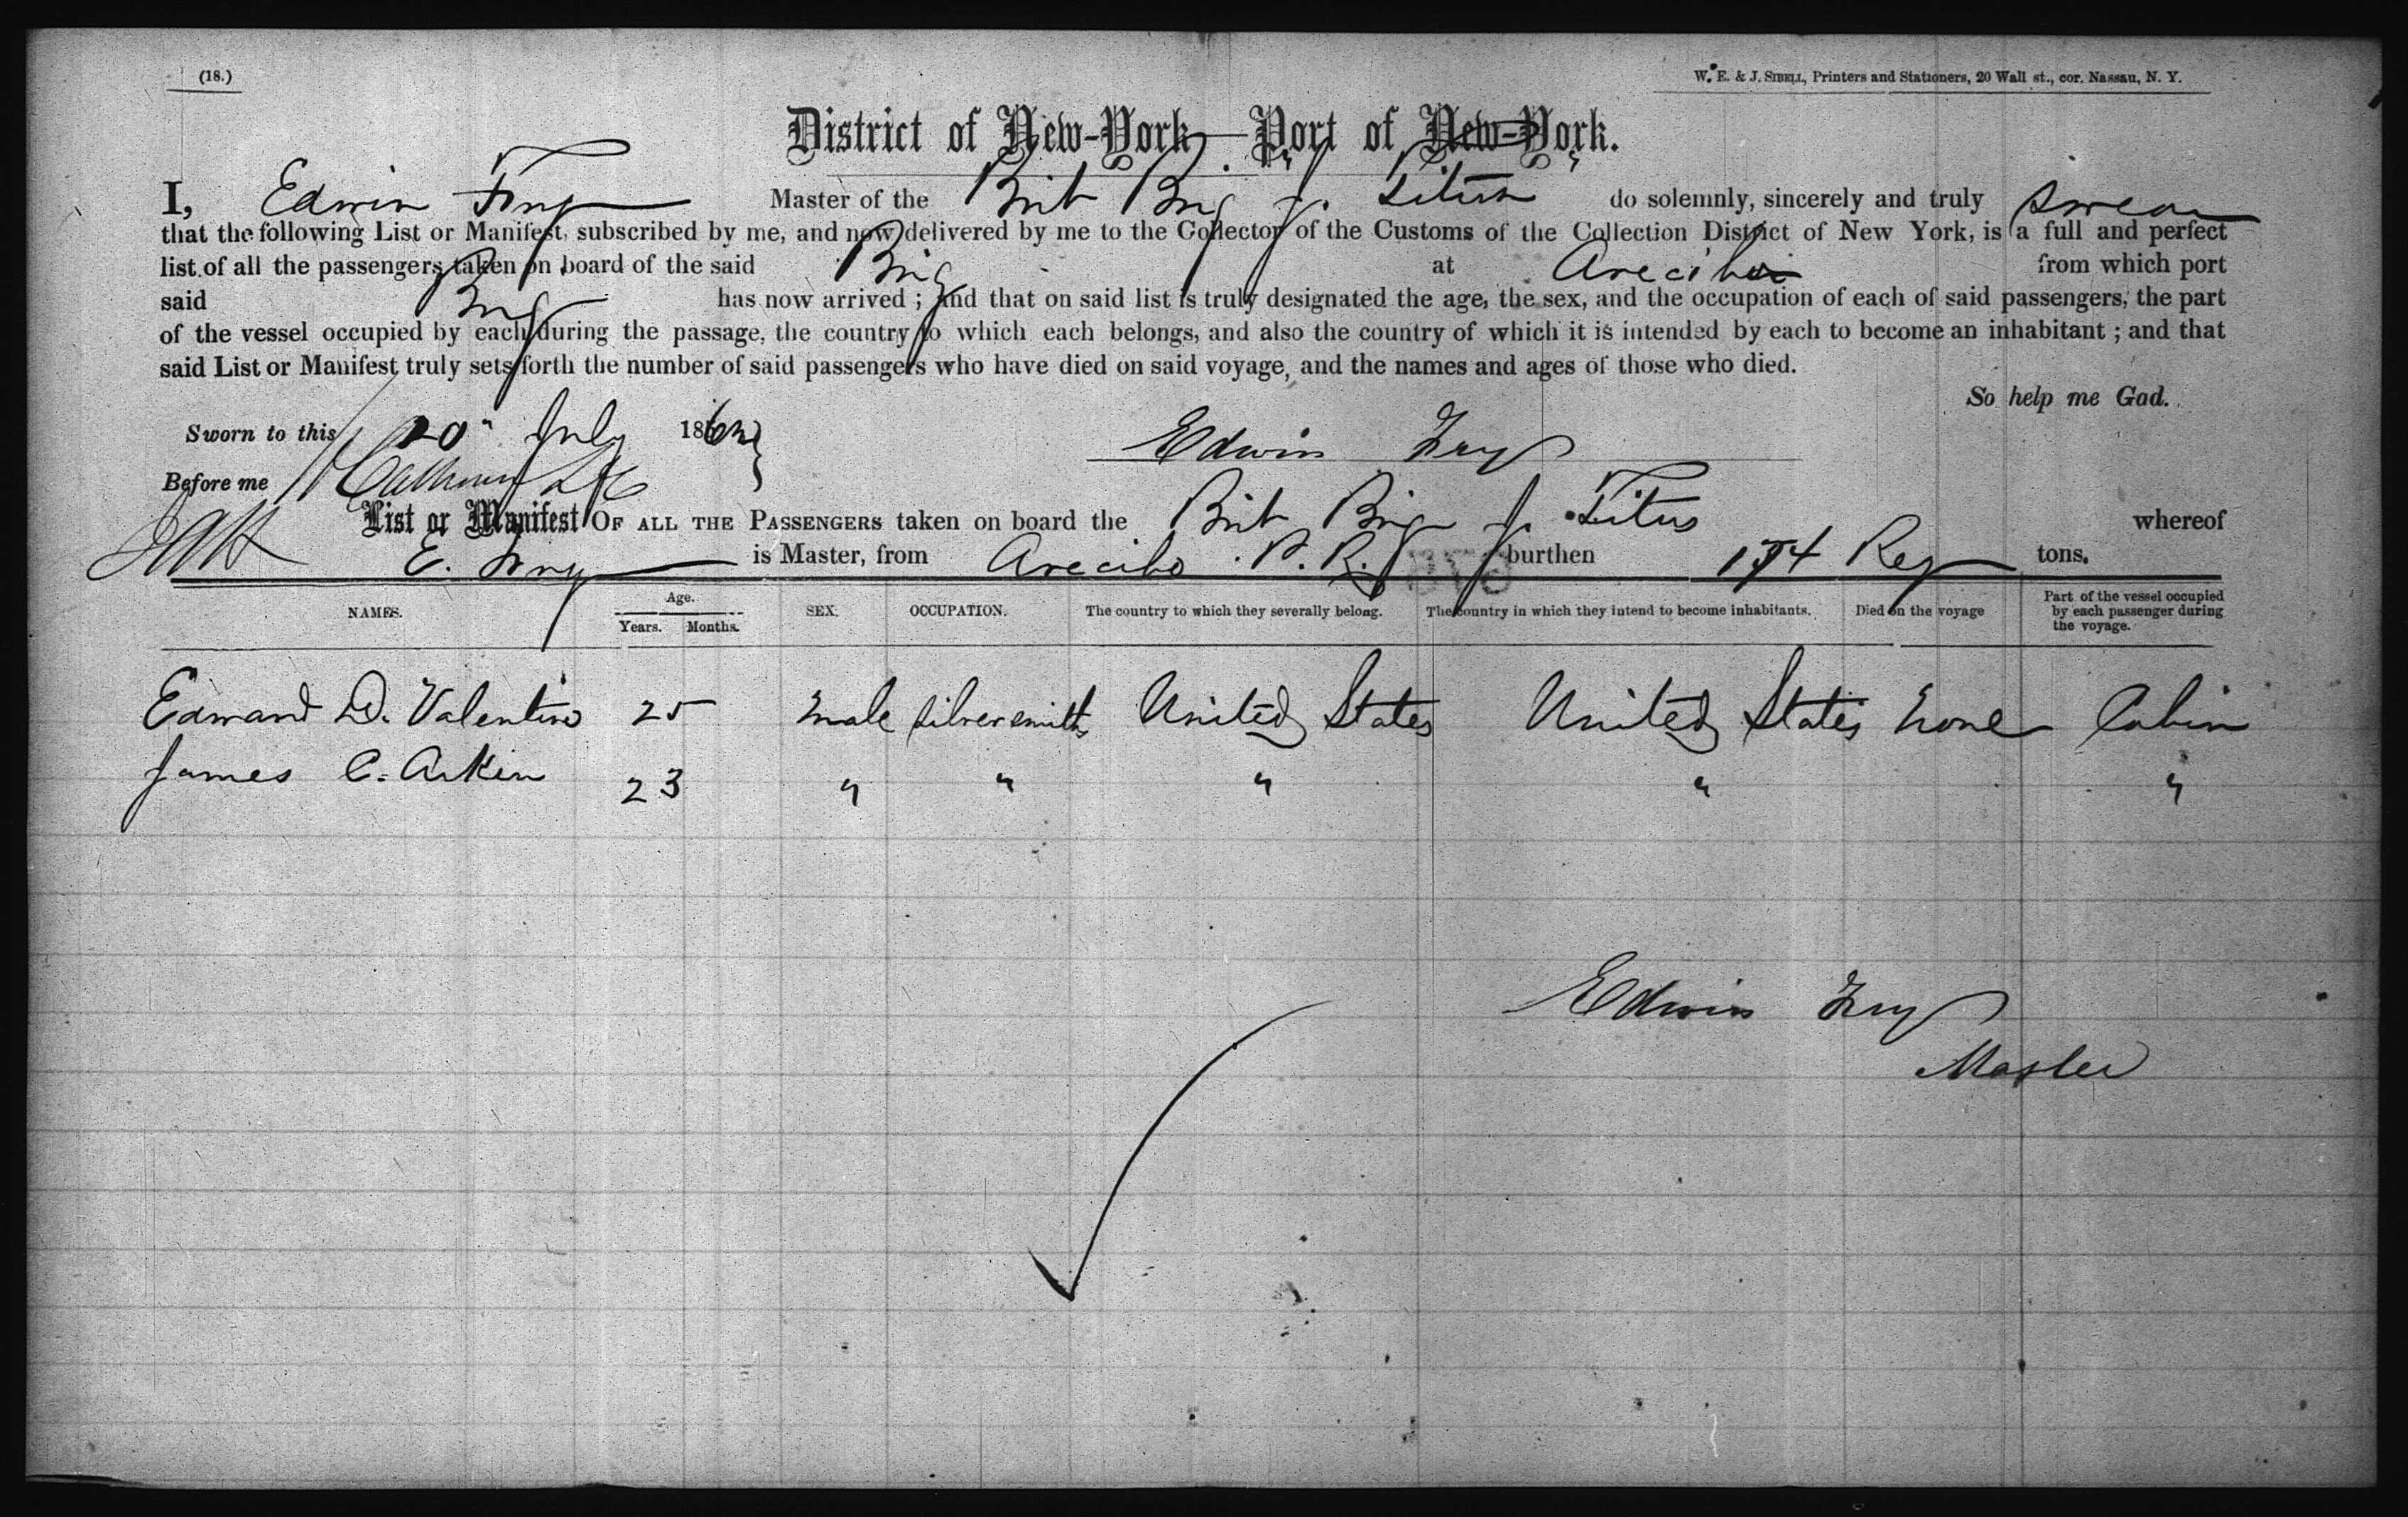 (18.)
W. E. & J. SIBELL, Printers and Stationers, 20 Wall st., cor. Nassau, N. Y.
District of New-York—Port of New-York.
I, Edwin Fry Master of the Brit Brig J. Titus do solemnly, sincerely and truly swear
that the following List or Manifest, subscribed by me, and now delivered by me to the Collector of the Customs of the Collection District of New York, is a full and perfect
list of all the passengers taken on board of the said Brig at Arecibo from which port
said Brig has now arrived ; and that on said list is truly designated the age, the sex, and the occupation of each of said passengers, the part
of the vessel occupied by each during the passage, the country to which each belongs, and also the country of which it is intended by each to become an inhabitant ; and that
said List or Manifest truly sets forth the number of said passengers who have died on said voyage, and the names and ages of those who died.
So help me God.
Sworn to this 20" July 186
Edwin Fry
Before me
List or Manifest OF ALL THE PASSENGERS taken on board the Brit Brig J. Titus whereof
E. Fry is Master, from Arecibo P. R. burthen 174 Reg tons.
NAMES. Age. Years. Months. SEX. OCCUPATION. The country to which they severally belong. The country in which they intend to become inhabitants. Died on the voyage Part of the vessel occupied by each passenger during the voyage.
Edward D. Valentine 25 male silversmith United States United States None Cabin
James C. Arkin 23 " " " " "
Edwin Fry
Master